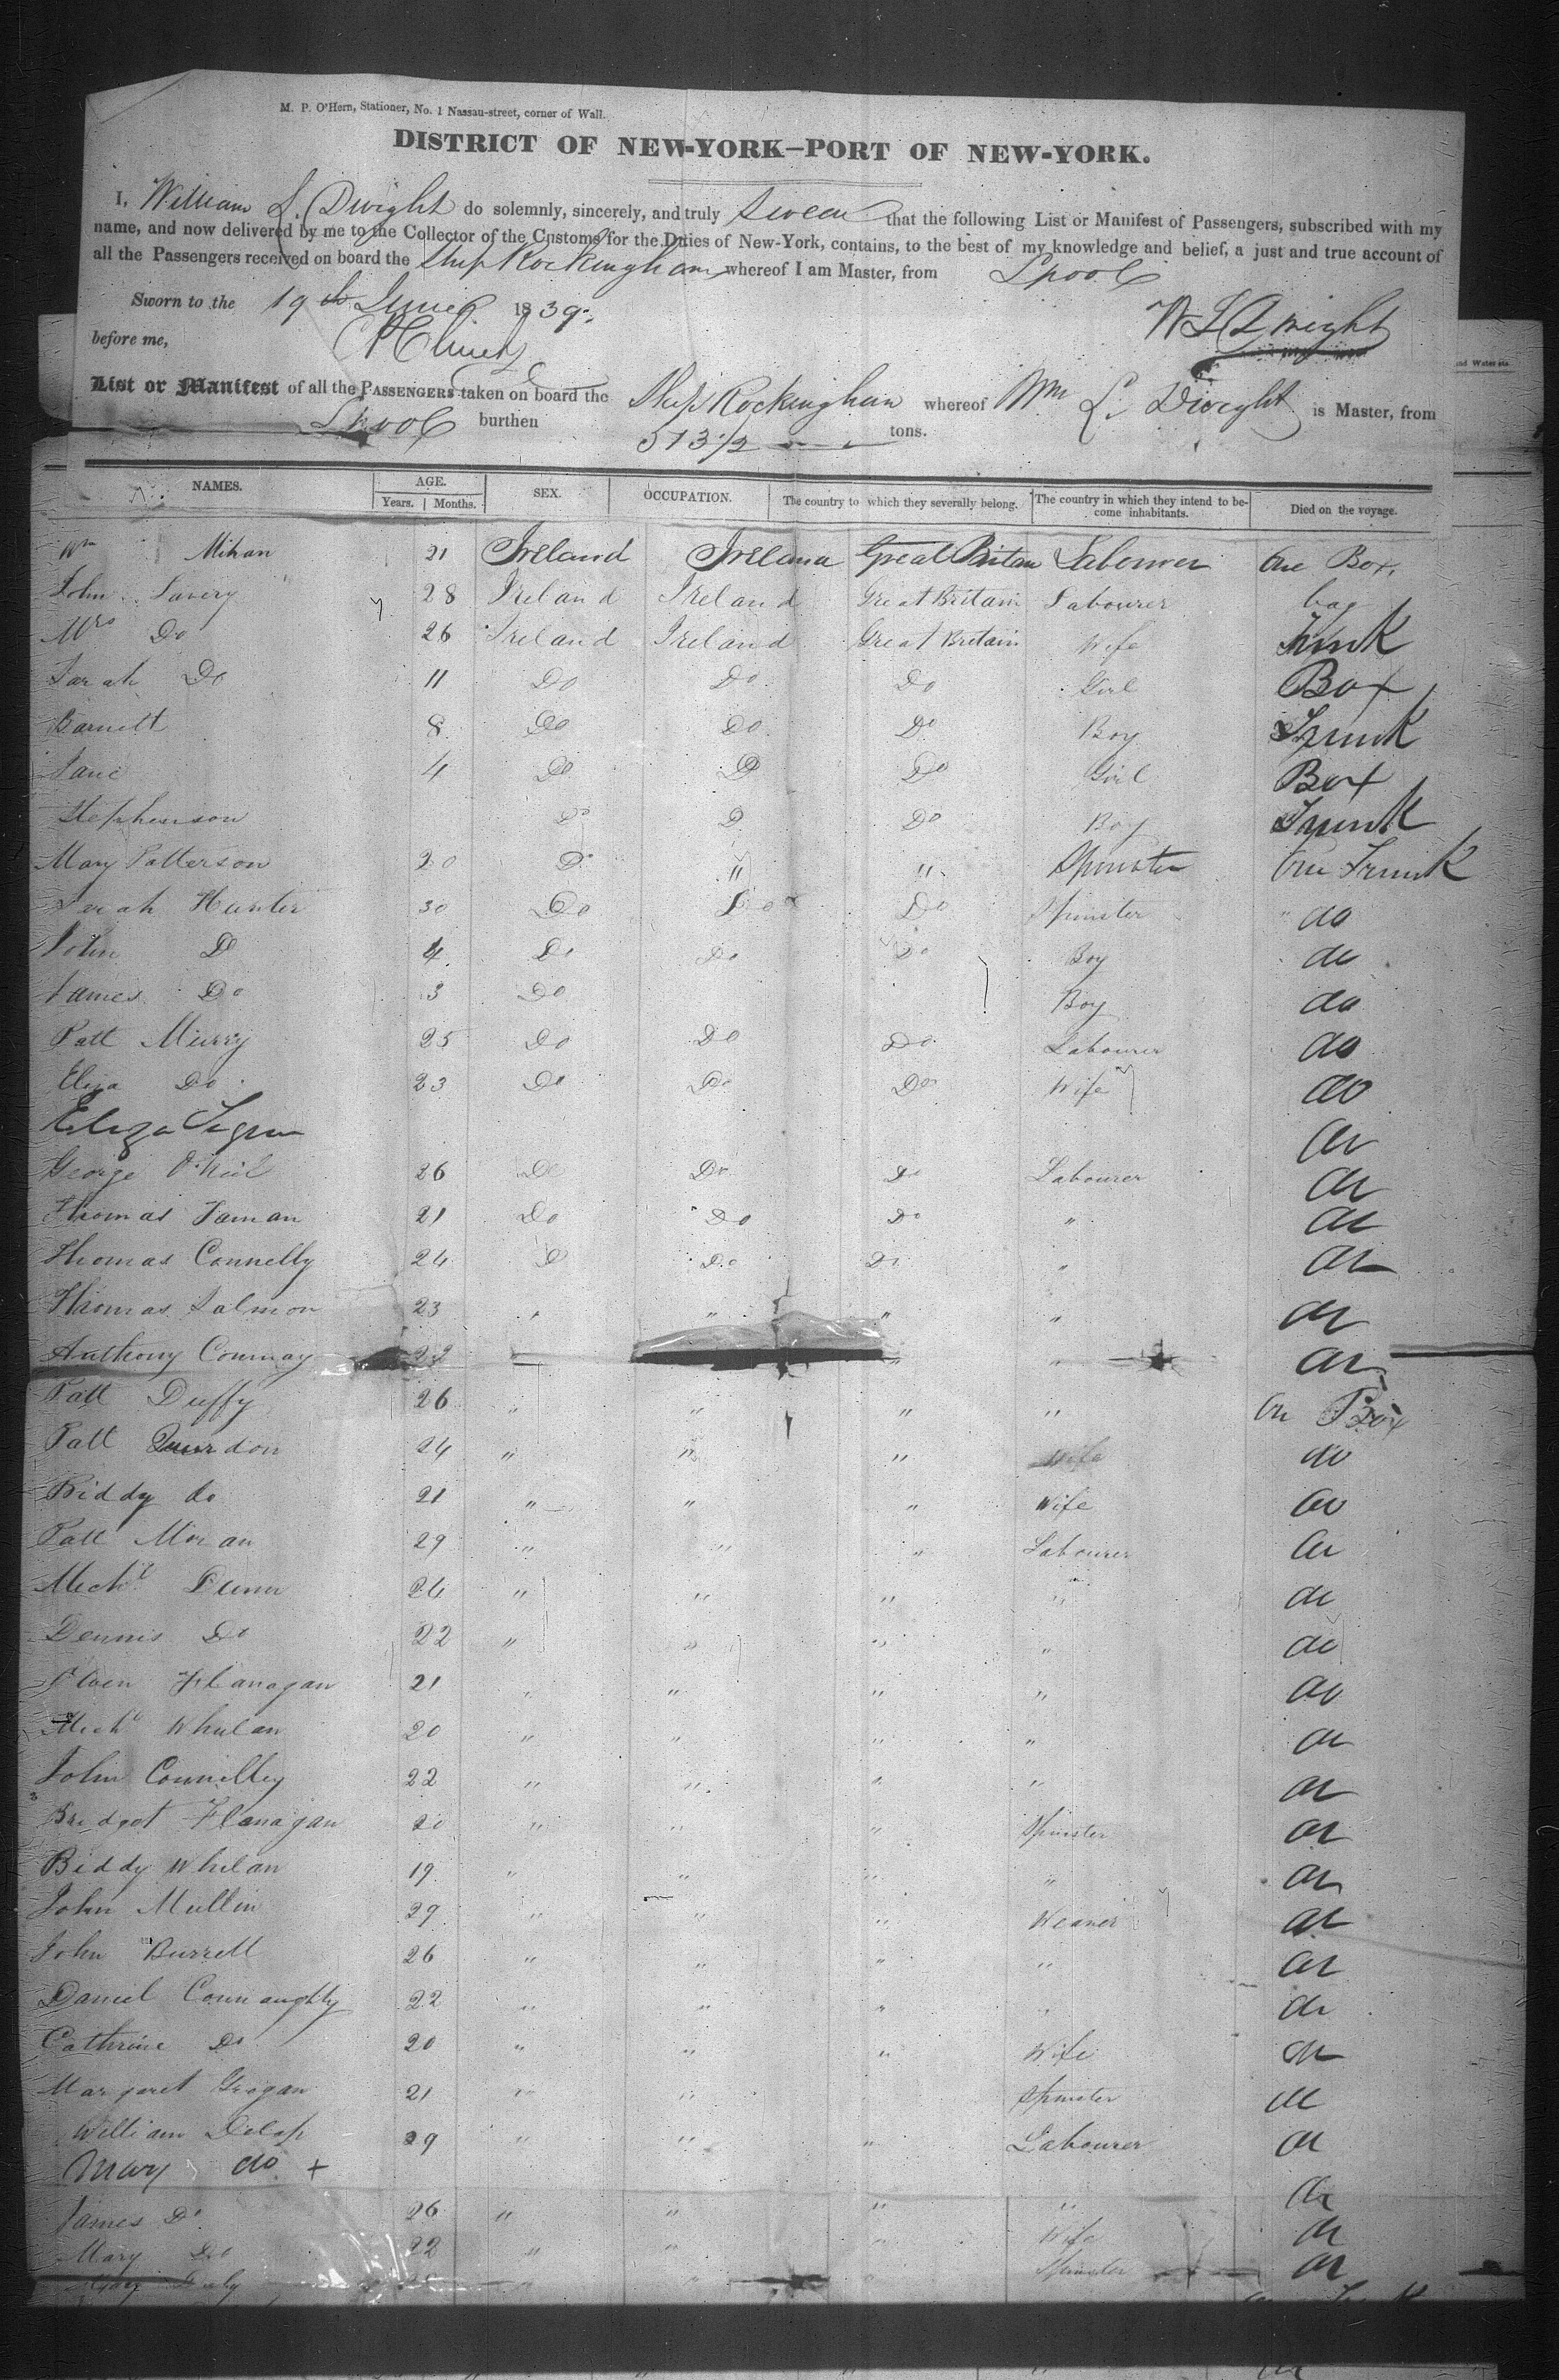 M. P. O'Hern, Stationer, No. 1 Nassau-street, corner of Wall.
DISTRICT OF NEW-YORK—PORT OF NEW-YORK.
I, William L. Dwight do solemnly, sincerely, and truly Swear that the following List or Manifest of Passengers, subscribed with my
name, and now delivered by me to the Collector of the Customs for the Duties of New-York, contains, to the best of my knowledge and belief, a just and true account of
all the Passengers received on board the Ship Rockingham whereof I am Master, from Lpool
Sworn to the 19th June 1839.
W L Dwight
before me,
List or Manifest of all the PASSENGERS taken on board the Ship Rockingham whereof Wm L. Dwight is Master, from
Lpool burthen 513 1/2 tons.
NAMES. AGE. SEX. OCCUPATION. The country to which they severally belong. The country in which they intend to be- Died on the voyage.
Years. Months. come inhabitants.
Wm Mihan 21 Ireland Ireland Great Britain Labourer One Box.
John Savery 28 Ireland Ireland Great Britain Labourer bag
Mrs Do 26 Ireland Ireland Great Britain Wife Trunk
Sarah Do 11 Do Do Do Girl Box
Barnett 8 Do Do Do Boy Trunk
Jane 4 Do D Do Girl Box
Stephenson Do D Do Boy Trunk
Mary Patterson 20 D " " Spinster One Trunk
Sarah Hunter 30 Do Do Do Spinster " do
John D 4 Do Do Do Boy do
James Do 3 Do Boy do
Patt Murry 25 Do Do Do Labourer do
Eliza Do 23 Do Do Do Wife do
Eliza do
George O'Neil 26 Do Do Do Labourer do
Thomas 21 Do Do Do " do
Thomas Connelly 24 D Do Do " do
Thomas Salmon 23 " " " " do
Anthony Conway " " " do
Patt Duffy 26 " " " " One Box
Patt 24 " " " Wife do
Biddy do 21 " " " Wife do
Patt Moran 29 " " " Labourer do
Mich'l Dunn 24 " " " " do
Dennis Do 22 " " " " do
Owen Flanagan 21 " " " " do
Mich'l Whelan 20 " " " " do
John Connilley 22 " " " " do
Bridget Flanagan 20 " " " Spinster do
Biddy Whelan 19 " " " " do
John Mullin 29 " " " Weaver do
John Burrell 26 " " " " do
Daniel Connaughty 22 " " " " do
Cathrine Do 20 " " " Wife do
Margaret Grogan 21 " " Spinster do
William Delap 29 " " " Labourer do
Mary do +
James Do 26 " " " " do
Mary Do 22 " " " Wife do
Mary " " Spinster do